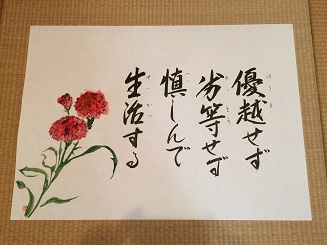 優越せず
劣等せず
慎しんで
生活する